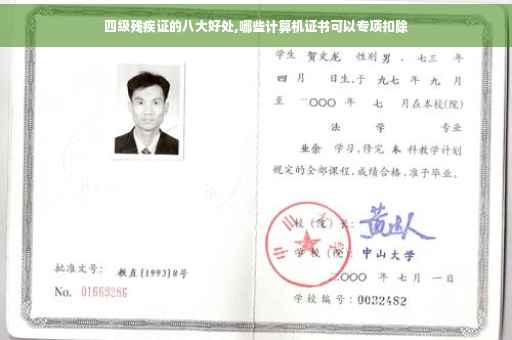 四级残疾证的八大好处,哪些计算机证书可以专项扣除
学生 贺文龙 性别 男 、七三 年
四 月 日生,于 九七 年 九 月
至 二〇〇〇 年 七 月在本校(院)
法 学 专业
业余 学习,修完 本 科教学计划
规定的全部课程,成绩合格,准予毕业。
校(院)长:
学校(院): 中山大学
二〇〇〇 年 七 月 一 日
批准文号: 教直[1993]8号
No. 01669286
学校编号: 0032482